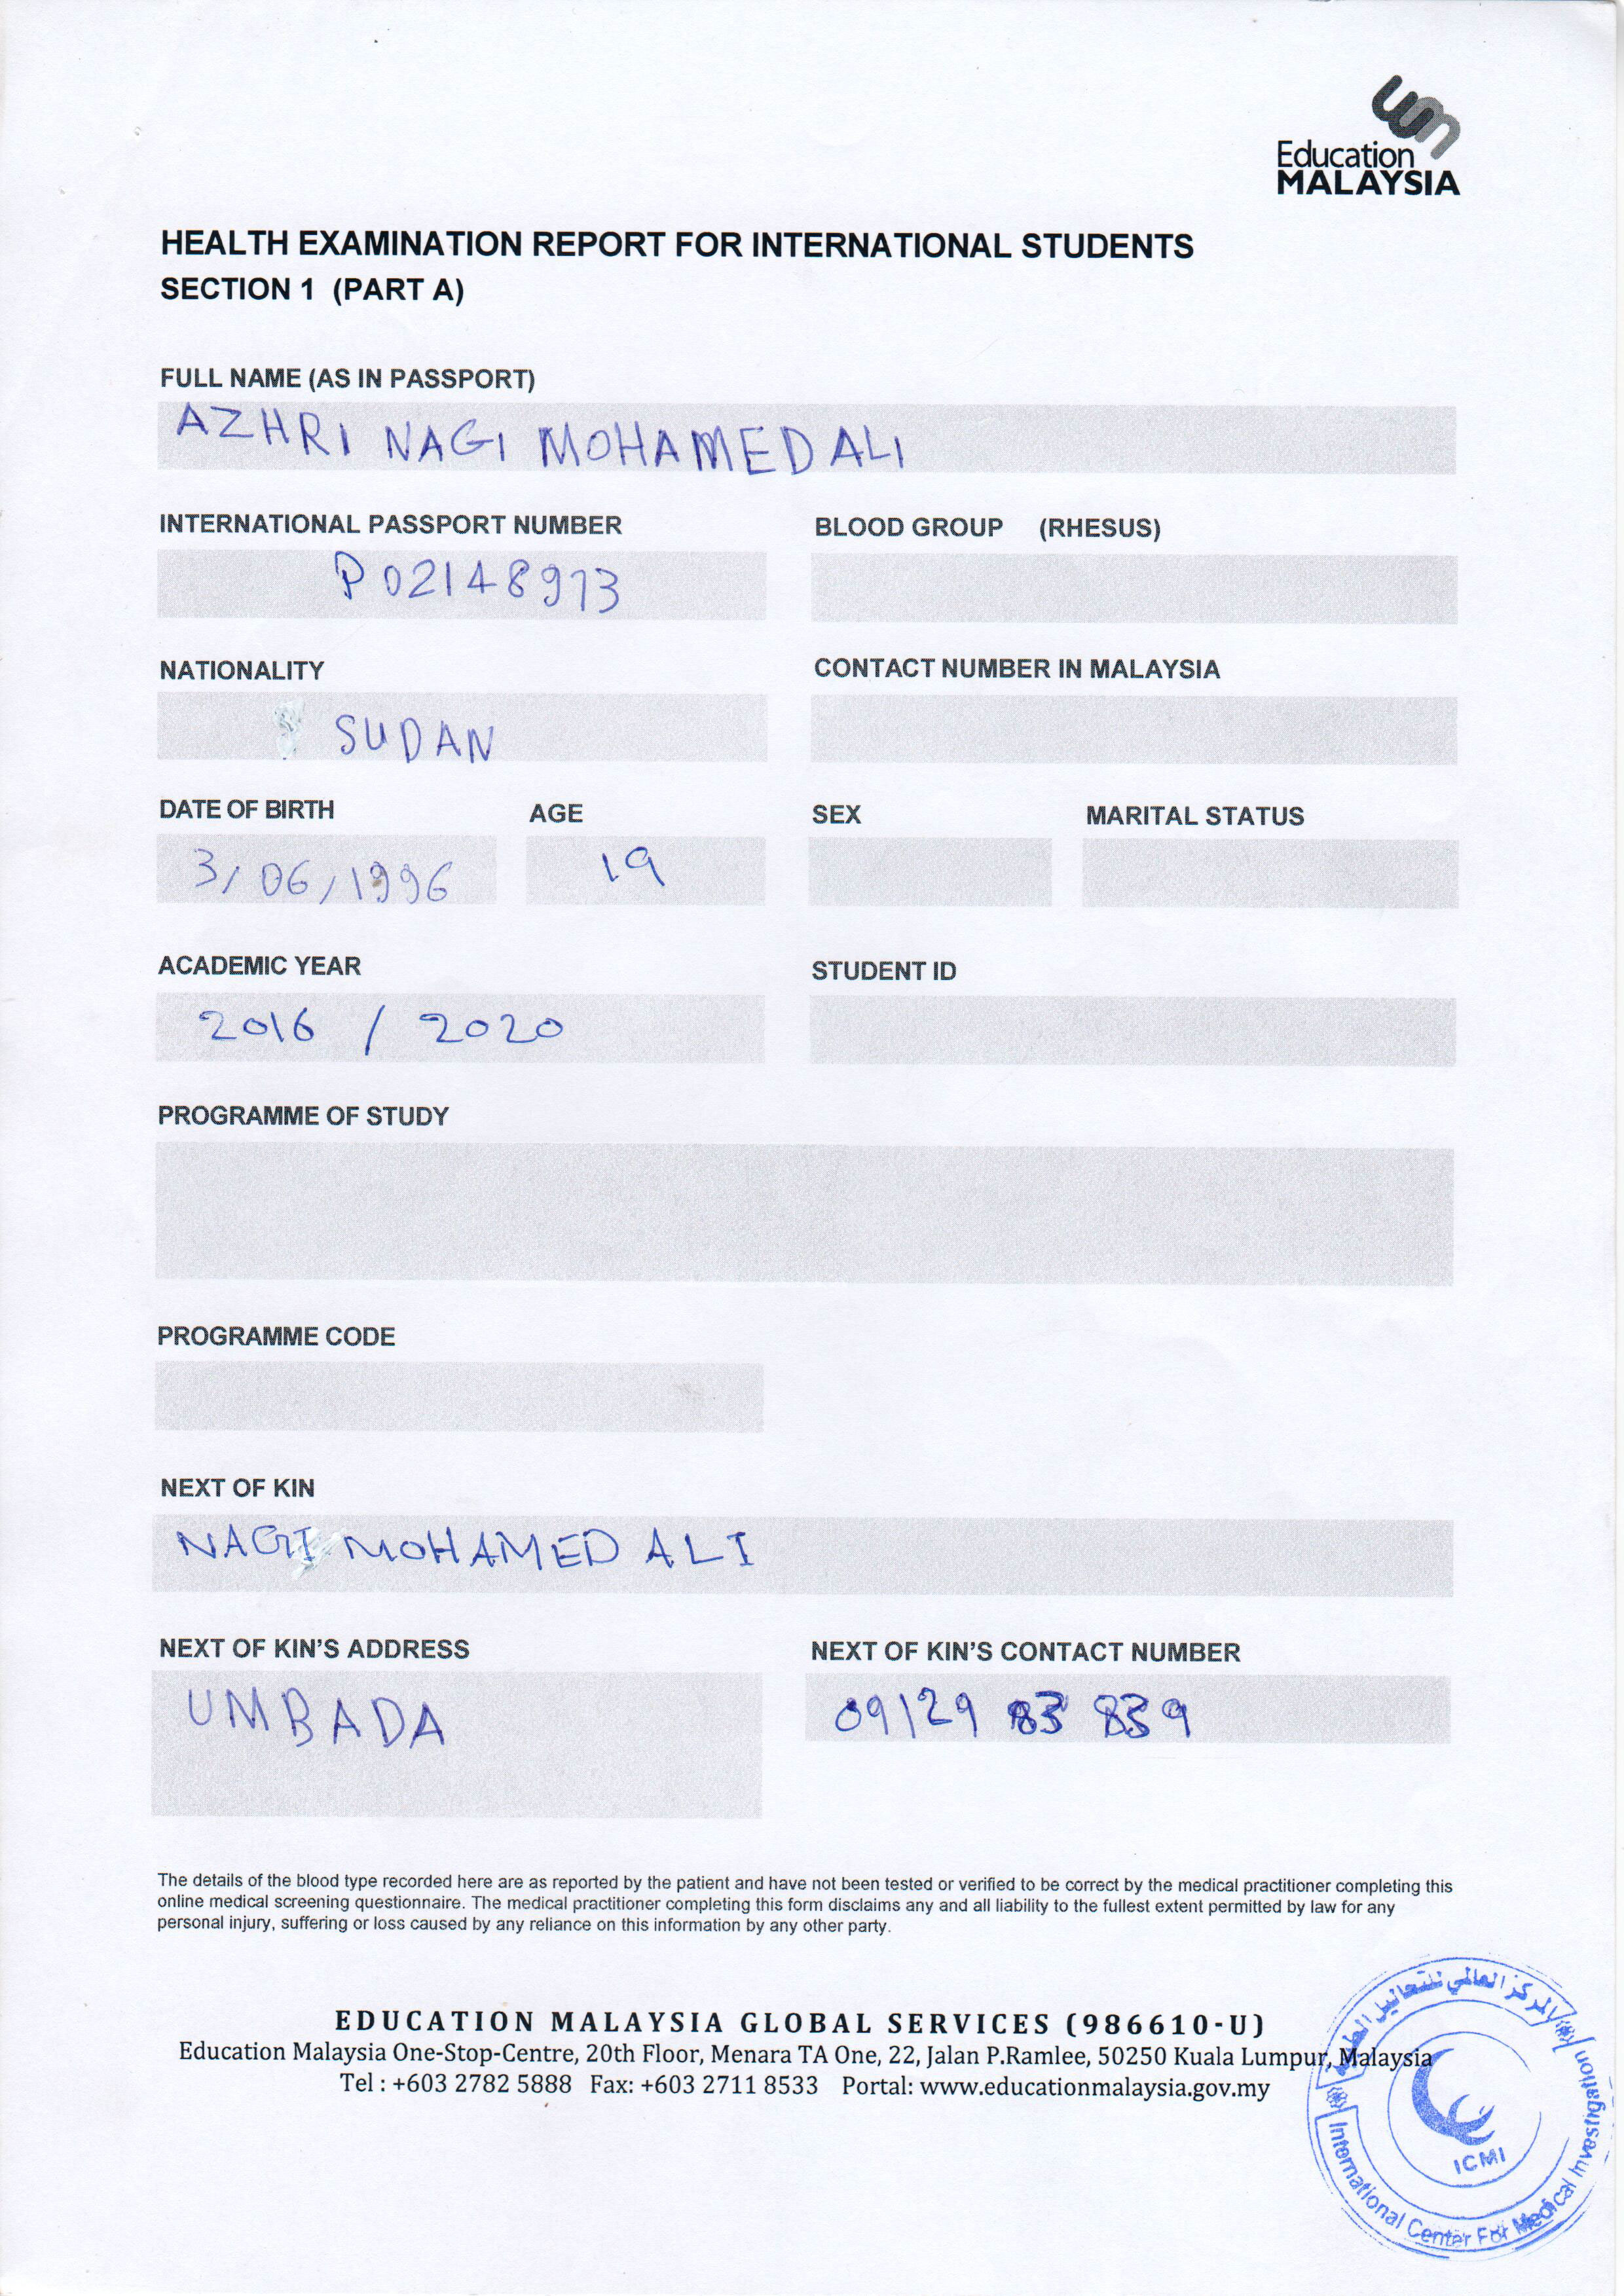 Education
MALAYSIA
HEALTH EXAMINATION REPORT FOR INTERNATIONAL STUDENTS
SECTION 1 (PART A)
FULL NAME (AS IN PASSPORT)
AZHRI NAGI MOHAMED ALI
INTERNATIONAL PASSPORT NUMBER
BLOOD GROUP (RHESUS)
P02148973
NATIONALITY
CONTACT NUMBER IN MALAYSIA
SUDAN
DATE OF BIRTH
AGE
SEX
MARITAL STATUS
3/06/1996
19
ACADEMIC YEAR
STUDENT ID
2016 / 2020
PROGRAMME OF STUDY
PROGRAMME CODE
NEXT OF KIN
NAGI MOHAMED ALI
NEXT OF KIN'S ADDRESS
NEXT OF KIN'S CONTACT NUMBER
UMBADA
09129 83 839
The details of the blood type recorded here are as reported by the patient and have not been tested or verified to be correct by the medical practitioner completing this
online medical screening questionnaire. The medical practitioner completing this form disclaims any and all liability to the fullest extent permitted by law for any
personal injury, suffering or loss caused by any reliance on this information by any other party.
EDUCATION MALAYSIA GLOBAL SERVICES (986610-U)
Education Malaysia One-Stop-Centre, 20th Floor, Menara TA One, 22, Jalan P.Ramlee, 50250 Kuala Lumpur, Malaysia
Tel : +603 2782 5888 Fax: +603 2711 8533 Portal: www.educationmalaysia.gov.my
المركز العالمي للتحاليل الطبية
ICMI
International Center For Medical Investigation